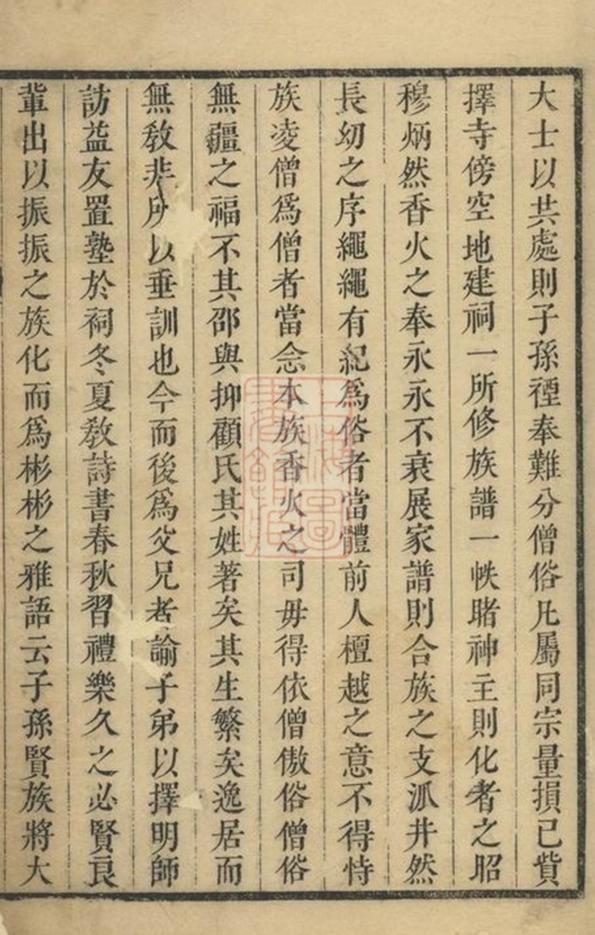 大士以共處則子孫禋奉難分僧俗凡屬同宗量損已貲
擇寺傍空地建祠一所修族譜一帙睹神主則化者之昭
穆炳然香火之奉永永不衰展家譜則合族之支派井然
長幼之序繩繩有紀爲俗者當體前人檀越之意不得恃
族凌僧爲僧者當念本族香火之司毋得依僧傲俗僧俗
無疆之福不其邵與抑顧氏其姓著矣其生繁矣逸居而
無教非所以垂訓也今而後爲父兄者諭子弟以擇明師
訪益友置塾於祠冬夏教詩書春秋習禮樂久之必賢良
輩出以振振之族化而爲彬彬之雅語云子孫賢族將大